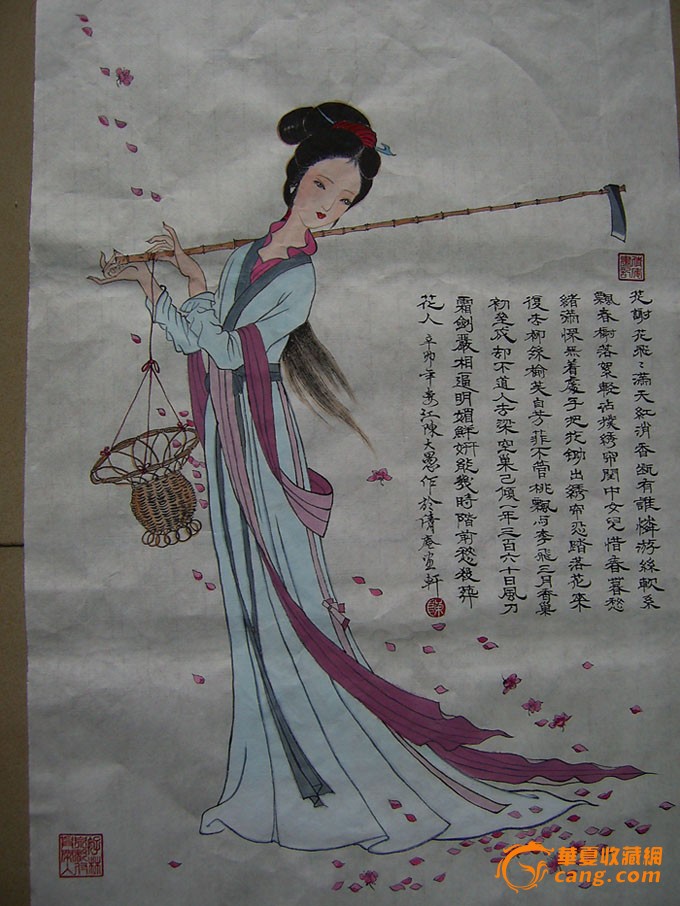 花謝花飛々滿天紅消香斷有誰憐游絲軟系
飄春榭落絮輕沾撲綉帘閨中女兒惜春暮愁
緒滿懷無着處手把花鋤出綉帘忍踏落花來
復去柳絲榆莢自芳菲不管桃飄与李飛三月香巢
初壘成却不道人去梁空巢已傾一年三百六十日風刀
霜劍嚴相逼明媚鮮妍能幾時階前愁殺葬
花人 辛卯年江陳大愚作於清菴畫軒
華夏收藏網
cang.com